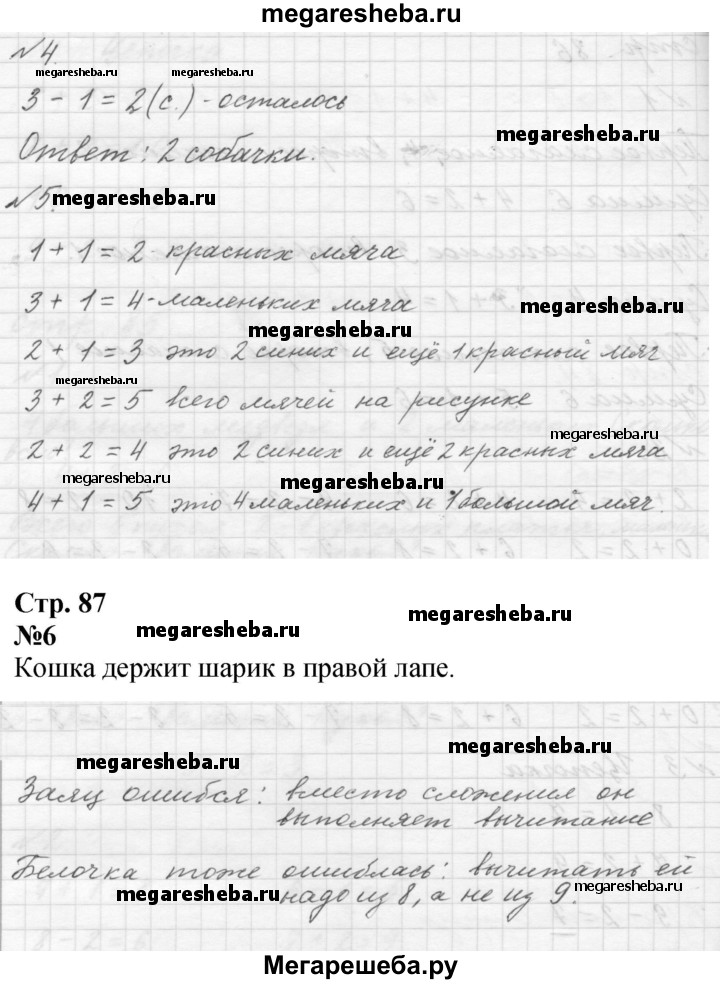 megaresheba.ru
№4.
megaresheba.ru megaresheba.ru
3 - 1 = 2 (с.) - осталось
megaresheba.ru
Ответ: 2 собачки.
№5. megaresheba.ru
1 + 1 = 2 - красных мяча
3 + 1 = 4 - маленьких мяча
megaresheba.ru
megaresheba.ru
2 + 1 = 3 это 2 синих и ещё 1 красный мяч
megaresheba.ru
3 + 2 = 5 всего мячей на рисунке
2 + 2 = 4 это 2 синих и ещё 2 красных мяча
megaresheba.ru
megaresheba.ru
megaresheba.ru
4 + 1 = 5 это 4 маленьких и 1 большой мяч.
Стр. 87
megaresheba.ru
№6
megaresheba.ru
Кошка держит шарик в правой лапе.
megaresheba.ru
megaresheba.ru
Заяц ошибся: вместо сложения он
выполняет вычитание
Белочка тоже ошиблась: вычитать ей
megaresheba.ru
надо из 8, а не из 9.
megaresheba.ru
Мегарешеба.ру